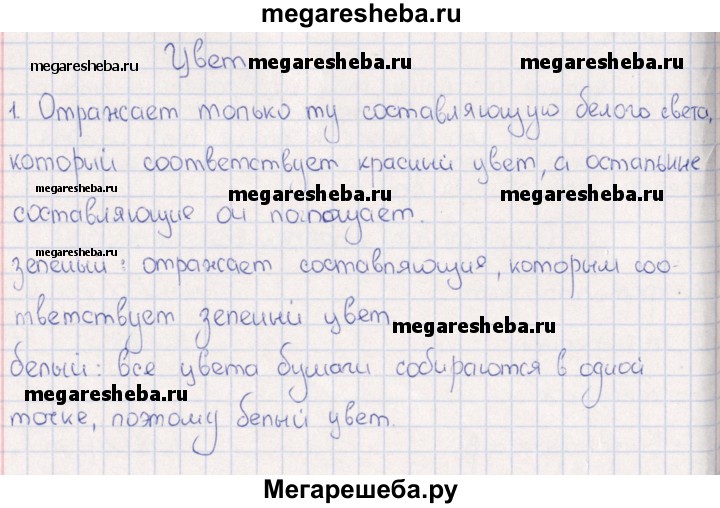 megaresheba.ru
megaresheba.ru Цвет megaresheba.ru megaresheba.ru
1. Отражает только ту составляющую белого света,
который соответствует красный цвет, а остальные
megaresheba.ru megaresheba.ru megaresheba.ru
составляющие он поглощает.
megaresheba.ru
зеленый: отражает составляющие, которым соо-
тветствует зеленый цвет.
megaresheba.ru
белый: все цвета бумаги собираются в одной
megaresheba.ru
точке, поэтому белый цвет.
Мегарешеба.ру